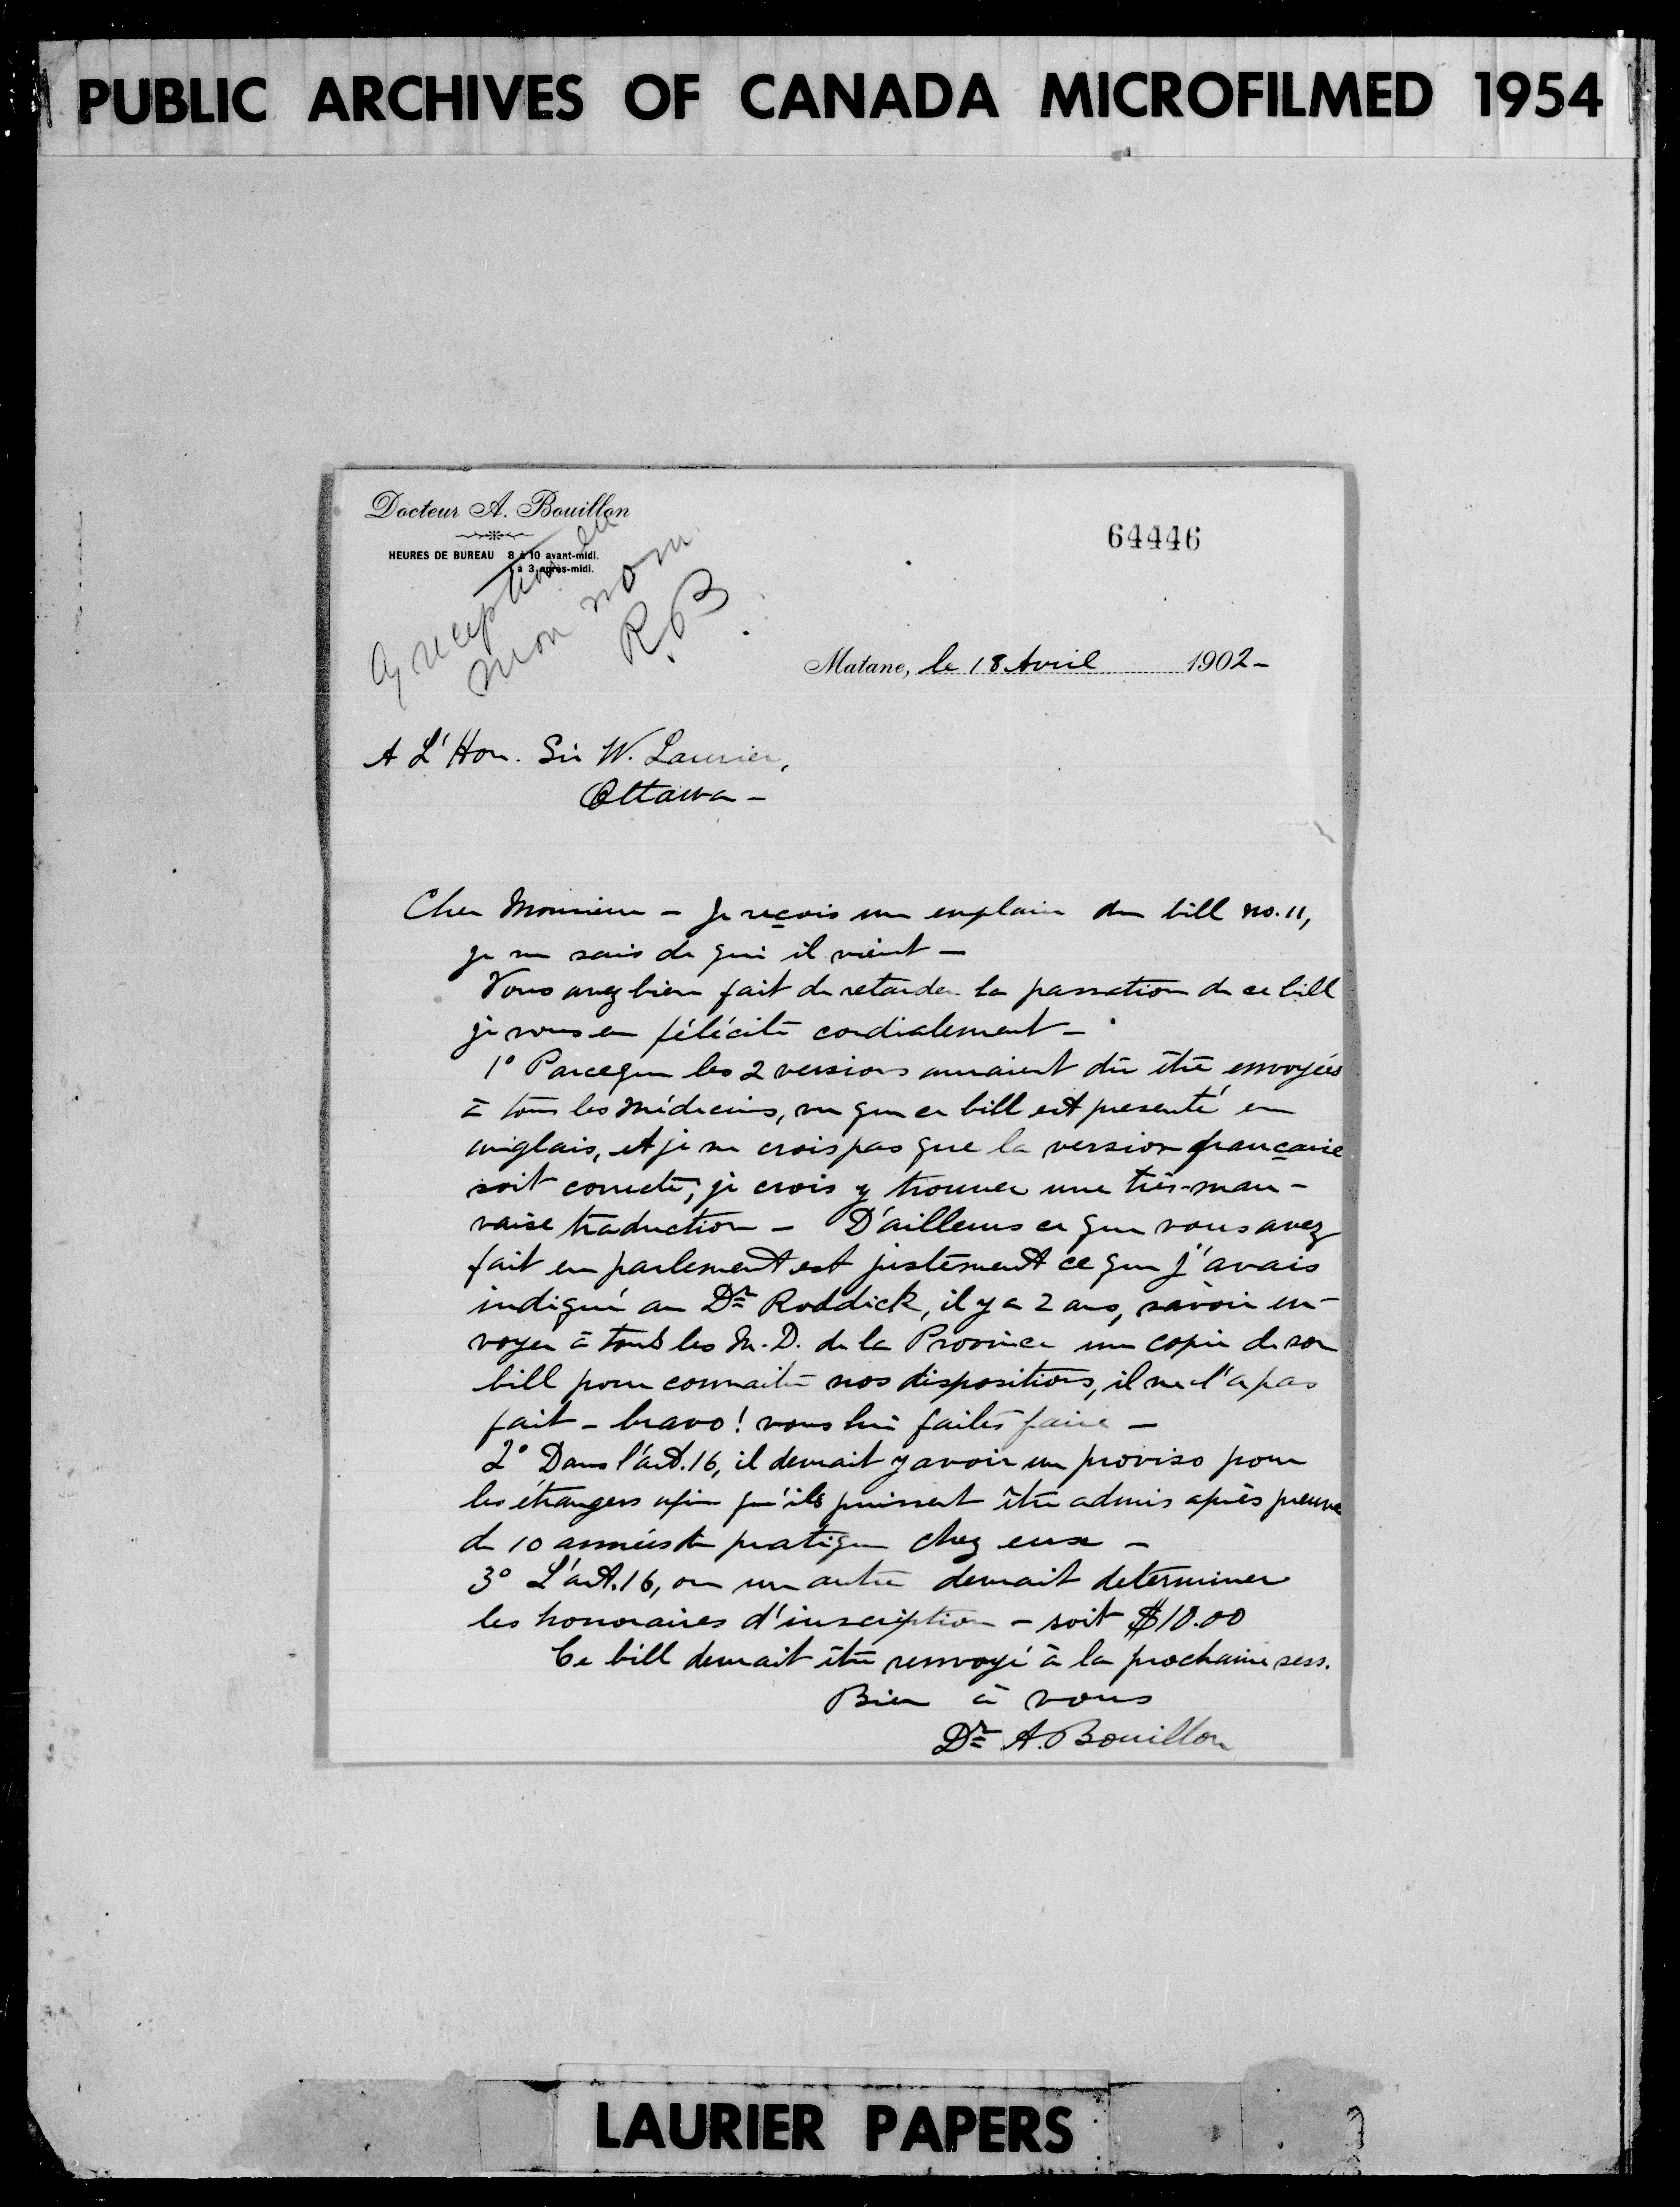 PUBLIC ARCHIVES OF CANADA MICROFILMED 1954
Docteur A. Bouillon
HEURES DE BUREAU 8 à 10 avant-midi.
à 3 après-midi.
64446
mon nom
R. B
Matane, le 18 Avril 1902-
A L'Hon. Sir W. Laurier,
Ottawa -
Cher Monsieur - Je reçois un exemplaire du bill no. 11,
je ne sais de qui il vient -
Vous avez bien fait de retarder la passation de ce bill
je vous en félécite cordialement -
1° Parceque les 2 versions auraient dû être envoyées
à tous les Médecins, vu que ce bill est presenté en
anglais, et je ne crois pas que la version française
soit correcte; je crois y trouver une très-mau-
vaise traduction - D'ailleurs ce que vous avez
fait en parlement est justement ce que j'avais
indiqué au Dr Roddick, il y a 2 ans, savoir en-
voyer à tous les M.D. de la Province une copie de son
bill pour connaitre nos dispositions, il ne l'a pas
fait - bravo! vous lui faites faire -
2° Dans l'art. 16, il devrait y avoir un proviso pour
les étrangers afin qu'ils puissent être admis après preuve
de 10 années de pratique chez eux -
3° L'art. 16, ou un autre devrait determiner
les honoraires d'inscription - soit $10.00
Ce bill devrait être renvoyé à la prochaine sess.
Bien à vous
Dr A. Bouillon
LAURIER PAPERS